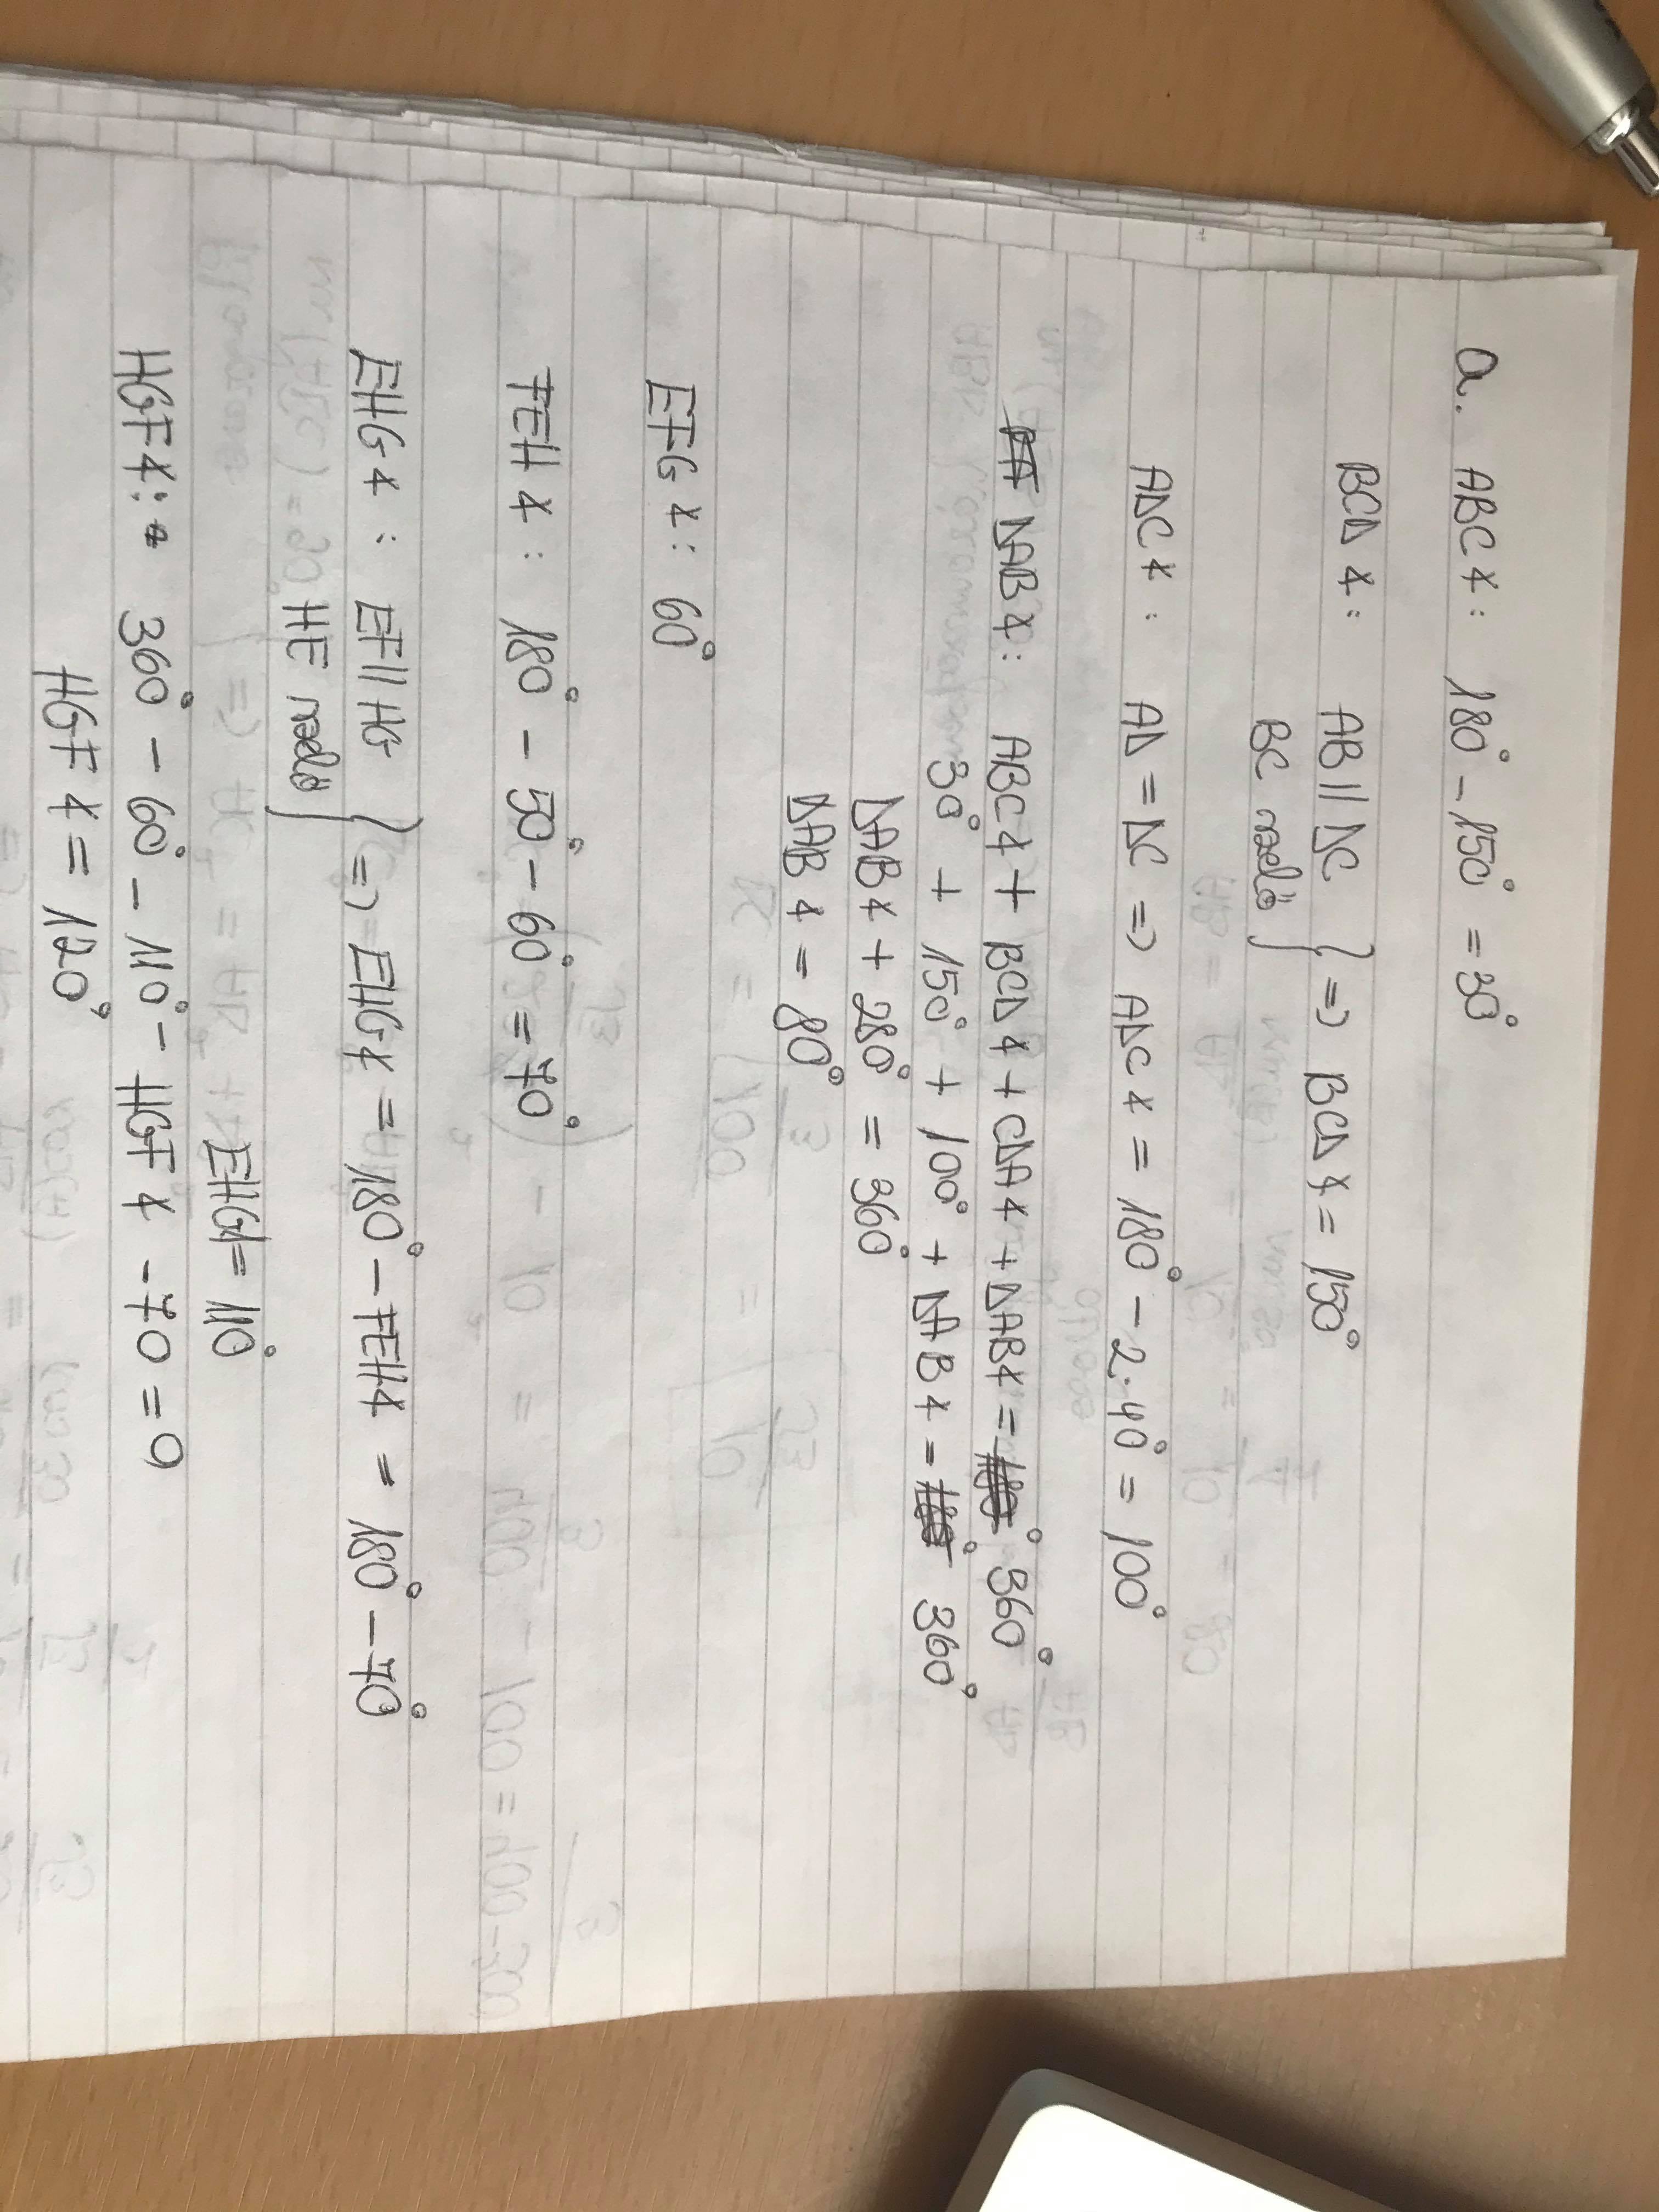 a. ABC∡: 180° - 150° = 30°
BCD∡: AB || DC } => BCD∡ = 150°
BC szelő
ADC∡: AD = DC => ADC∡ = 180° - 2·40° = 100°
DAB∡: ABC∡ + BCD∡ + CDA∡ + DAB∡ = 360°
30° + 150° + 100° + DAB∡ = 360°
DAB∡ + 280° = 360°
DAB∡ = 80°
EFG∡: 60°
FEH∡: 180° - 50° - 60° = 70°
EHG∡: EF || HG } => EHG∡ = 180° - FEH∡ = 180° - 70°
HE szelő
EHG∡ = 110°
HGF∡: 360° - 60° - 110° - HGF∡ - 70 = 0
HGF∡ = 120°